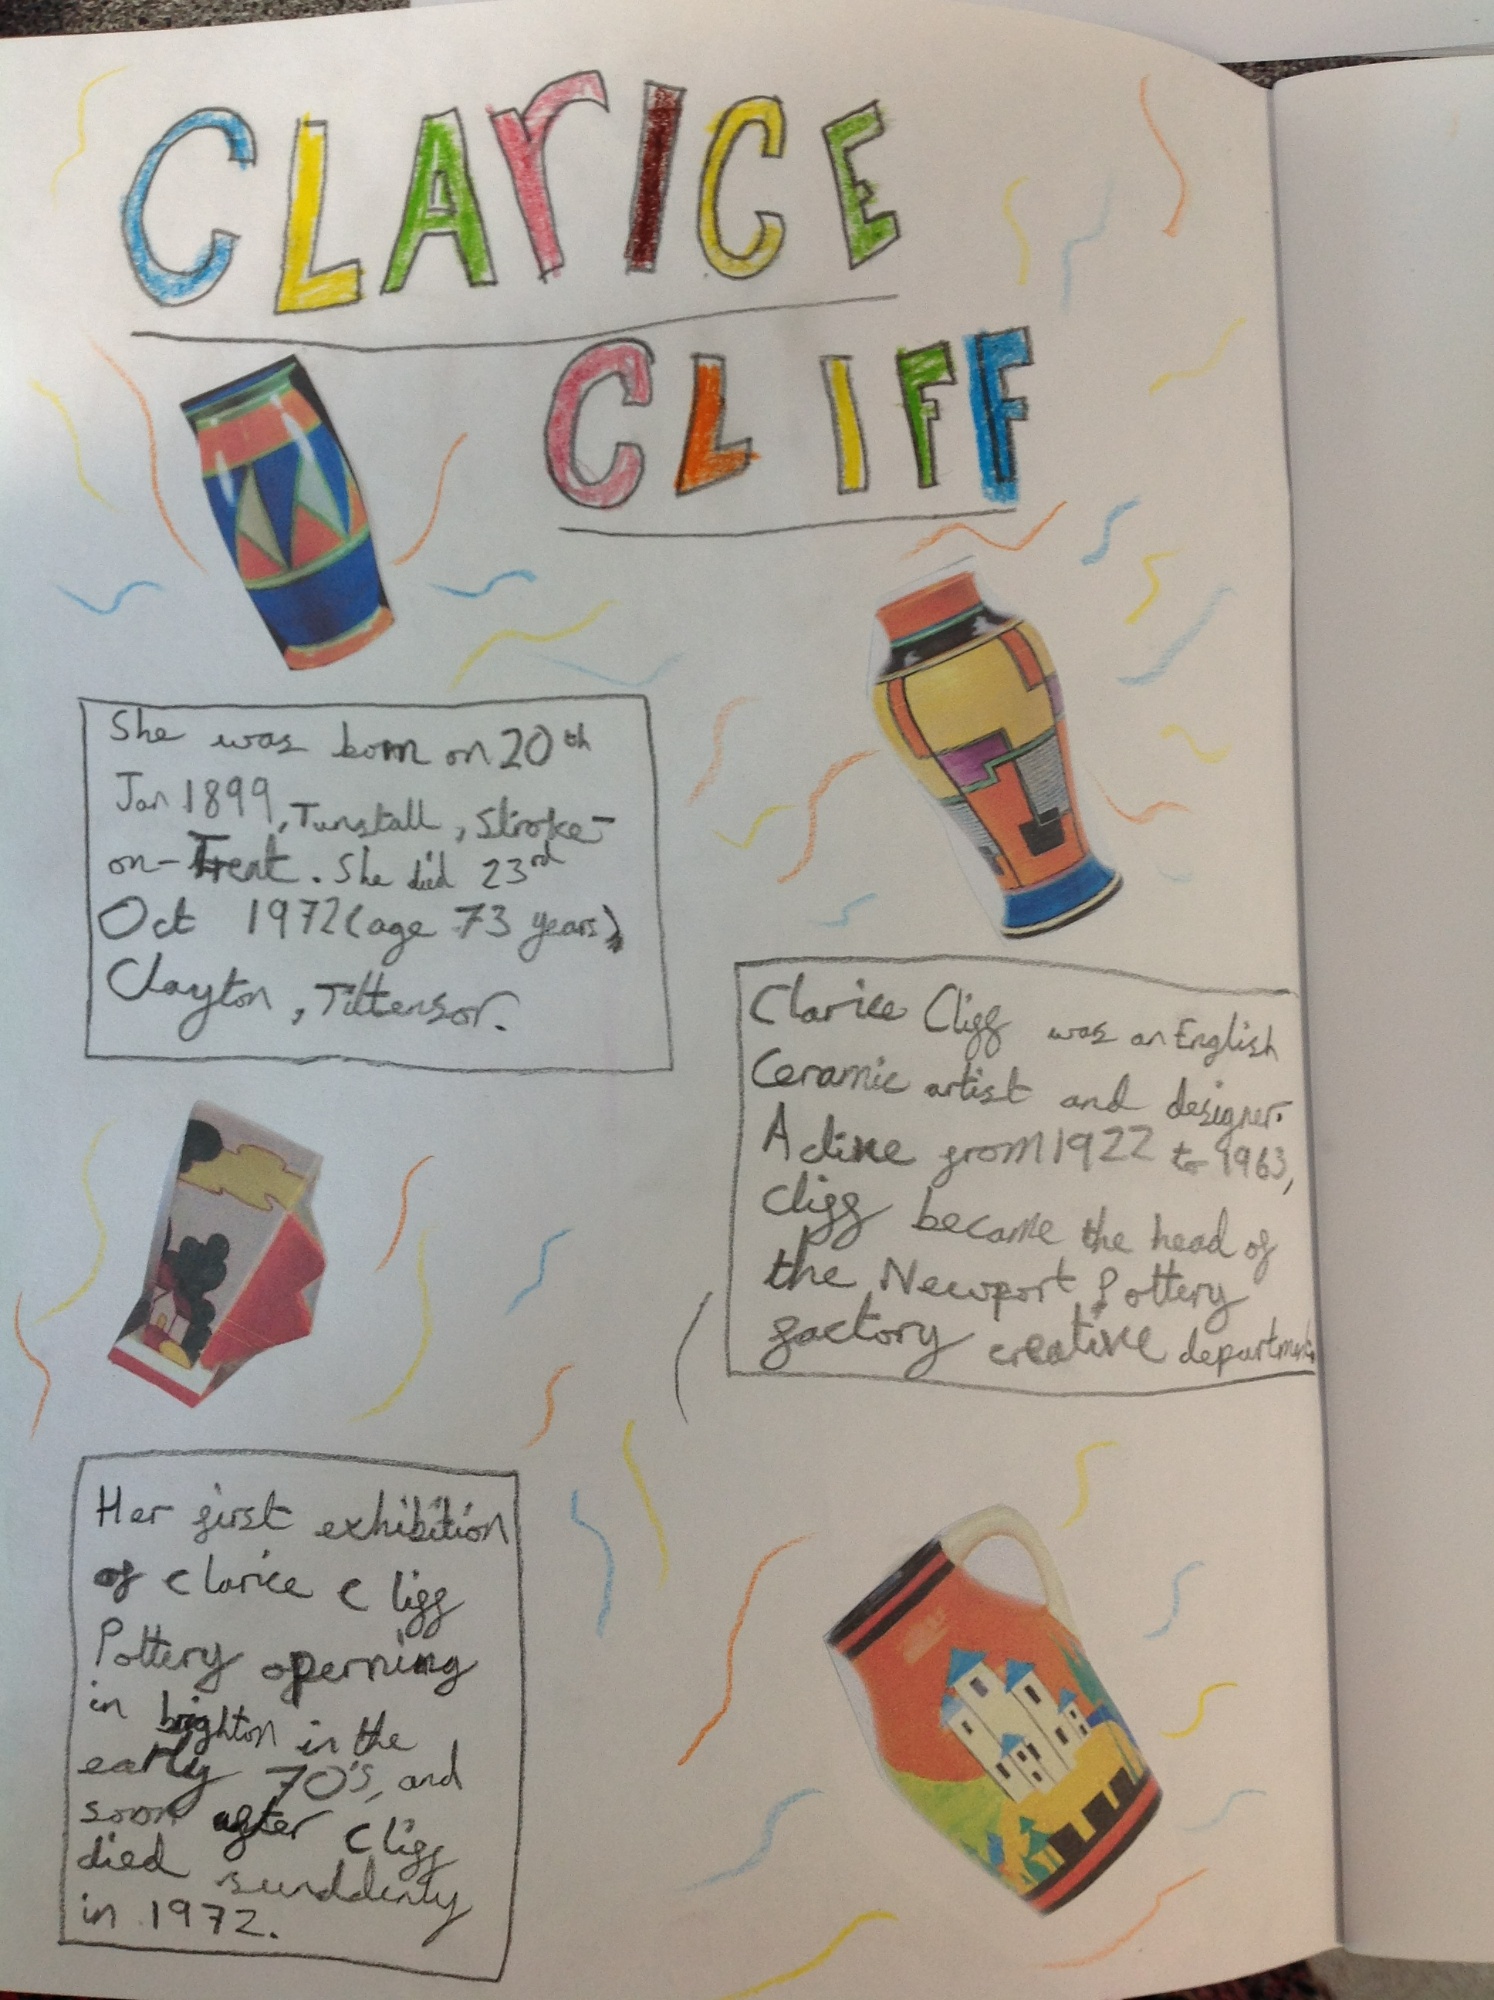 CLArICE
CLIFF
She was born on 20th
Jan 1899, Tunstall, Stroke-
on-Trent. She died 23rd
Oct 1972 (age 73 years)
Clayton, Tittensor.
Clarice Cliff was an English
Ceramic artist and designer.
Active from 1922 to 1963,
Cliff became the head of
the Newport Pottery
factory creative department.
Her first exhibition
of Clarice Cliff
Pottery operning
in brighton in the
early 70's, and
soon after Cliff
died sunddenly
in 1972.